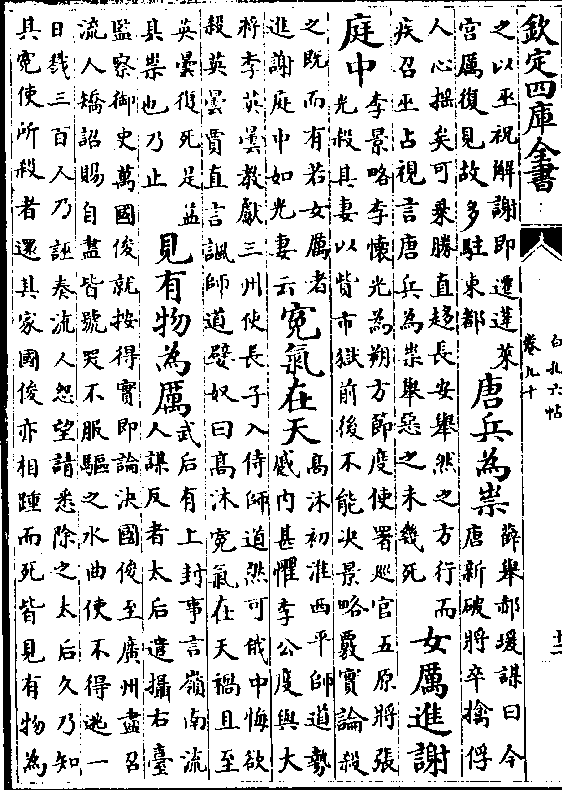 欽定四庫全書
白孔六帖
卷九十
十二
之以巫祝解謝即遷蓬萊
宫厲復見故多駐東都
唐兵為祟
薛舉郝瑗謀曰今
唐新破將卒擒俘
人心揺矣可乗勝直趨長安舉然之方行而
疾召巫占視言唐兵為祟舉惡之未幾死
女厲進謝
庭中
李景略李懷光為朔方節度使署廵官五原將張
光殺其妻以貲市獄前後不能决景略覈實論殺
之既而有若女厲者
進謝庭中如光妻云
寃氣在天
髙沐初淮西平師道勢
蹙内甚懼李公度與大
將李英曇教獻三州使長子入侍師道然可俄中悔欲
殺英曇賈直言諷師道嬖奴曰髙沐寃氣在天禍且至
英曇復死是益
其祟也乃止
見有物為厲
武后有上封事言嶺南流
人謀反者太后遣攝右臺
監察御史萬國俊就按得實即論决國俊至廣州盡召
流人矯詔賜自盡皆號哭不服驅之水曲使不得逃一
日戮三百人乃誣奏流人怨望請悉除之太后久乃知
其寃使所殺者還其家國俊亦相踵而死皆見有物為